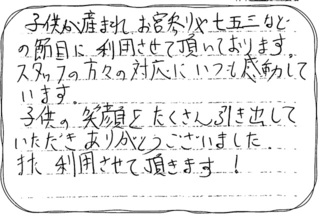 子供が産まれ お宮参りや七五三など
の節目に利用させて頂いております。
スタッフの方々の対応にいつも感動して
います。
子供の笑顔をたくさん引き出して
いただきありがとうございました。
また利用させて頂きます！